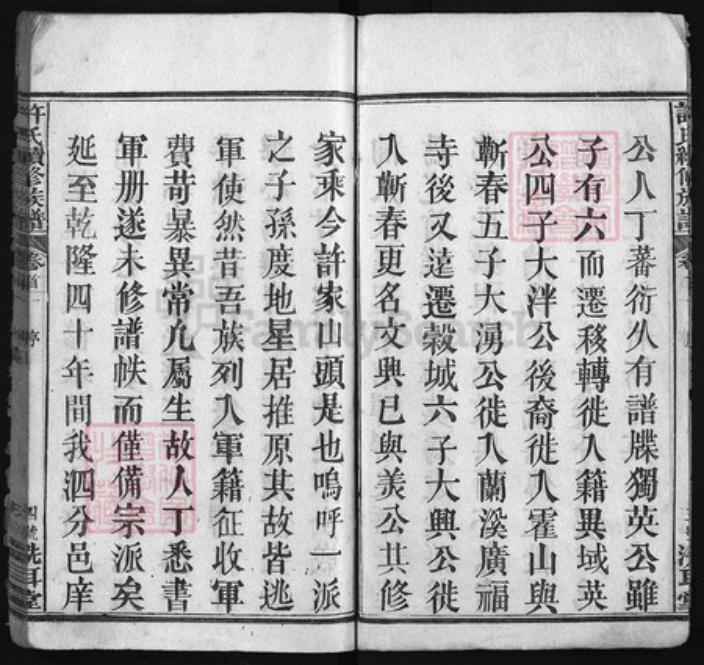 公人丁蕃衍久有譜牒獨英公雖
子有六而遷移轉徙入籍異域英
公四子大泮公後裔徙入霍山與
蘄春五子大湧公徙入蘭溪廣福
寺後又遠遷穀城六子大興公徙
入蘄春更名文興已與羙公共修
家乘今許家山頭是也嗚呼一派
之子孫度地星居推原其故皆逃
軍使然昔吾族列入軍籍征收軍
費苛暴異常凡屬生故人丁悉書
軍册遂未修譜帙而僅備宗派矣
延至乾隆四十年間我泗分邑庠
許氏續修族譜
卷首
序
洗耳堂
FamilySearch